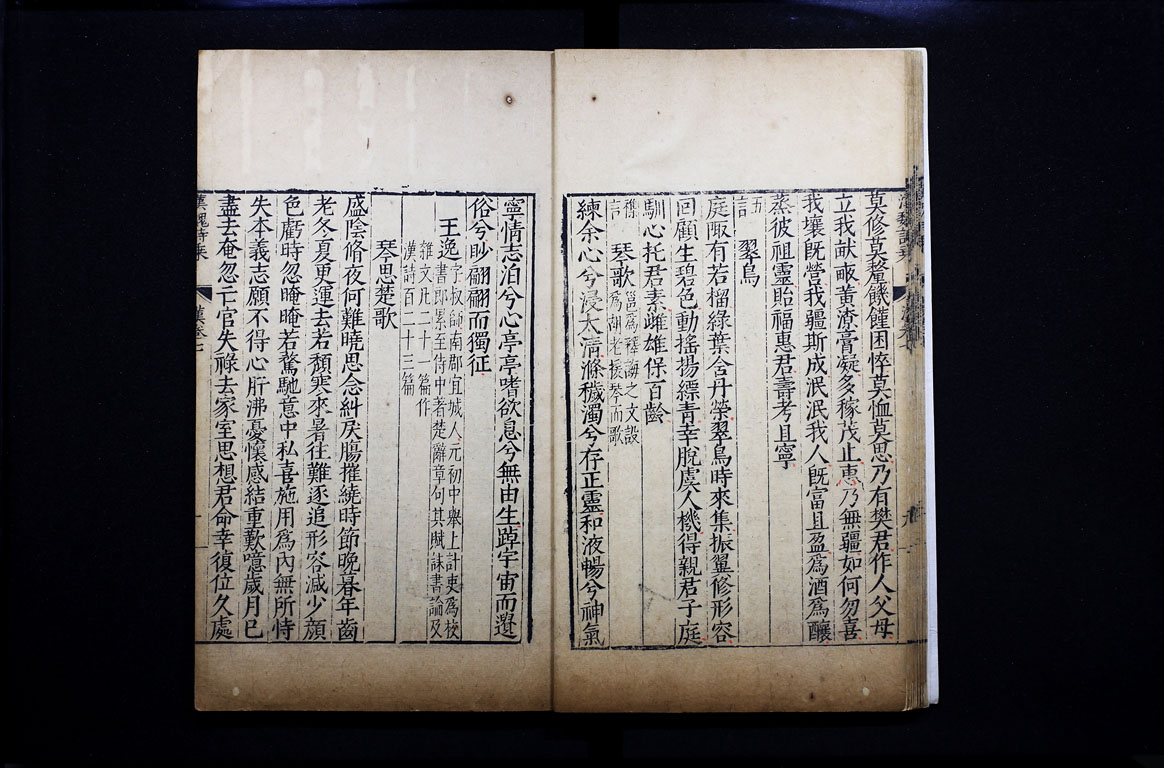 莫修莫釐饑饉困悴莫恤莫思乃有樊君作人父母
立我献畞黃潦膏凝多稼茂止惠乃無疆如何勿喜
我壤旣營我疆斯成泯泯我人旣富且盈爲酒爲釀
蒸彼祖靈貽福惠君壽考且寧
五言
翠鳥
庭陬有若榴綠葉含丹榮翠鳥時來集振翼修形容
回顧生碧色動搖揚縹青幸脫虞人機得親君子庭
馴心托君素雌雄保百齡
琴歌
邕爲釋誨之文設
爲胡老援琴而歌
練余心兮浸太清滌穢濁兮存正靈和液暢兮神氣
寧情志泊兮心亭亭嗜欲息兮無由生踔宇宙而遺
俗兮眇翩翩而獨征
王逸
字叔師南郡宜城人元初中舉上計吏爲校
書郎累至侍中著楚辭章句其賦誄書論及
雜文凡二十一篇作
漢詩百二十三篇
琴思楚歌
盛陰脩夜何難曉思念糾戾腸摧繞時節晚暮年齒
老冬夏更運去若頹寒來暑往難逐追形容減少顔
色虧時忽晻晻若騖馳意中私喜施用爲內無所恃
失本義志願不得心肝沸憂懷感結重歎噫歲月已
盡去奄忽亡官失祿去家室思想君命幸復位久處
漢魏詩乘
漢卷七